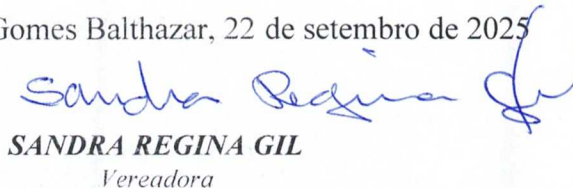 Gomes Balthazar, 22 de setembro de 2025
Sandra Regina Gil
SANDRA REGINA GIL
Vereadora